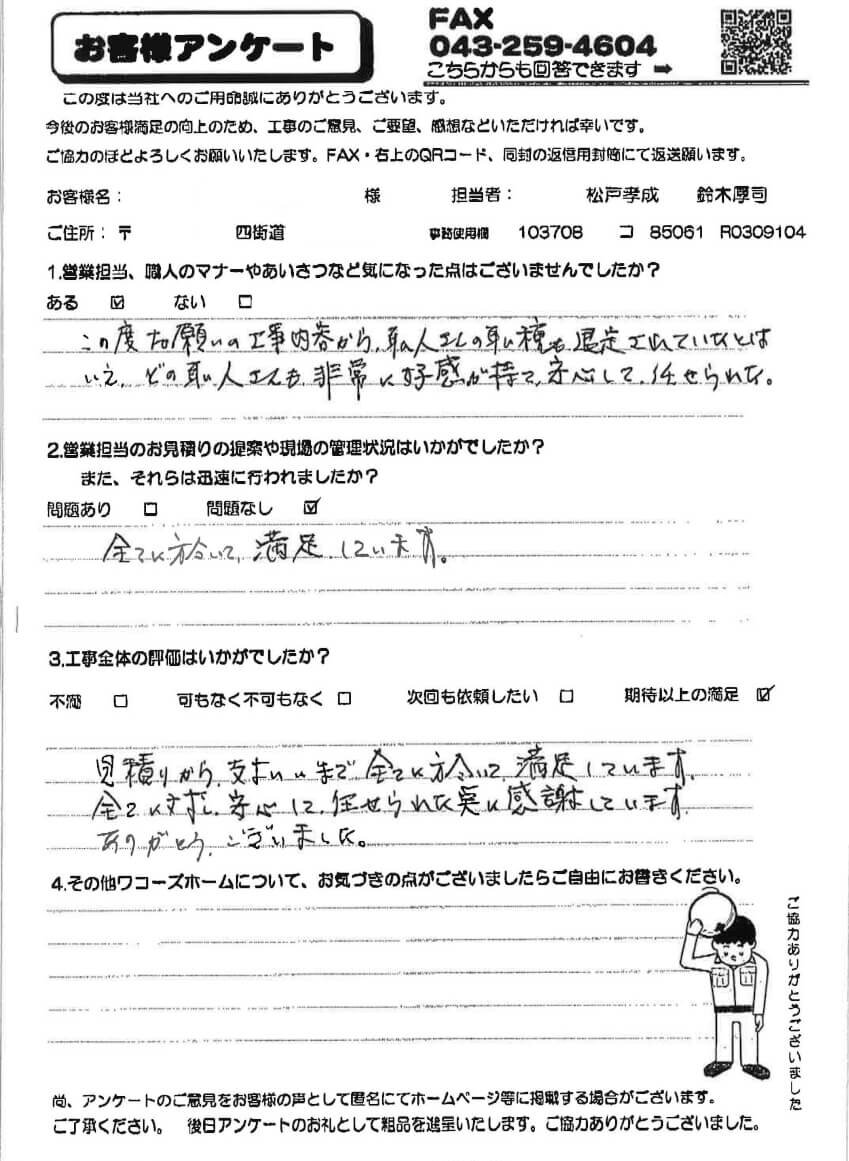 お客様アンケート
FAX
043-259-4604
こちらからも回答できます ➡
この度は当社へのご用命誠にありがとうございます。
今後のお客様満足の向上のため、工事のご意見、ご要望、感想などいただければ幸いです。
ご協力のほどよろしくお願いいたします。FAX・右上のQRコード、同封の返信用封筒にて返送願います。
お客様名： 様 担当者： 松戸孝成 鈴木厚司
ご住所：〒 四街道 事務使用欄 103708 コ 85061 R0309104
1.営業担当、職人のマナーやあいさつなど気になった点はございませんでしたか？
ある ☑ ない □
この度お願いの工事内容から、職人さんの職種も限定されていたとは
いえ、どの職人さんも、非常に好感が持て、安心して、任せられた。
2.営業担当のお見積りの提案や現場の管理状況はいかがでしたか？
また、それらは迅速に行われましたか？
問題あり □ 問題なし ☑
全てに於いて、満足しています。
3.工事全体の評価はいかがでしたか？
不満 □ 可もなく不可もなく □ 次回も依頼したい □ 期待以上の満足 ☑
見積りから、支払いまで、全てに於いて、満足しています。
全てに対し、安心して、任せられた事に感謝しています。
ありがとう、ございました。
4.その他ワコーズホームについて、お気づきの点がございましたらご自由にお書きください。
ご協力ありがとうございました
尚、アンケートのご意見をお客様の声として匿名にてホームページ等に掲載する場合がございます。
ご了承ください。 後日アンケートのお礼として粗品を進呈いたします。ご協力ありがとうございました。